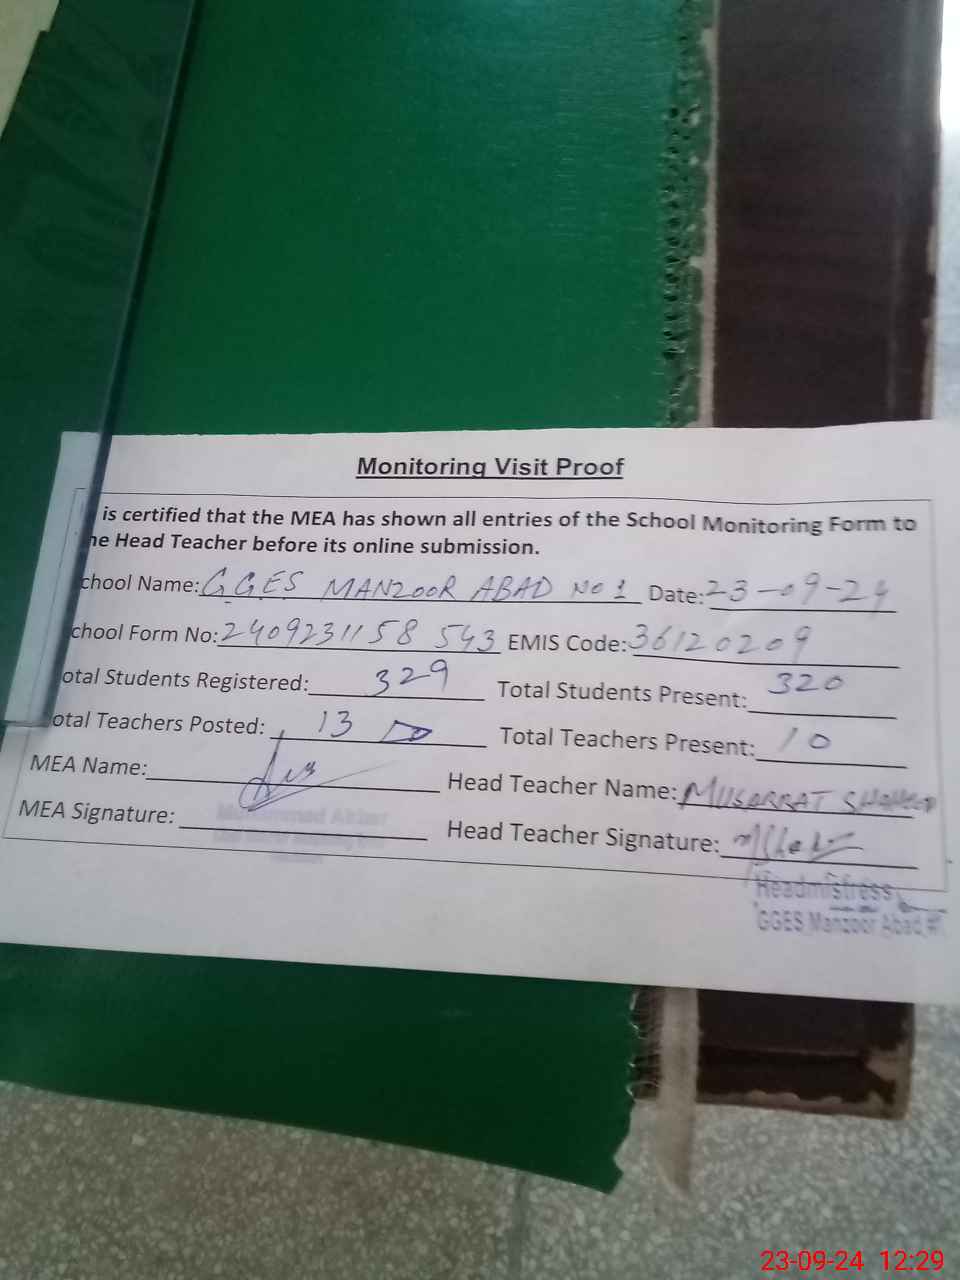 Monitoring Visit Proof
is certified that the MEA has shown all entries of the School Monitoring Form to
he Head Teacher before its online submission.
chool Name: GGES MANZOOR ABAD NO 1 Date: 23-09-24
chool Form No: 2409231158 543 EMIS Code: 36120209
otal Students Registered: 329 Total Students Present: 320
otal Teachers Posted: 13 Total Teachers Present: 10
MEA Name: Head Teacher Name: MUSARRAT
MEA Signature: Head Teacher Signature:
Headmistress
GGES Manzoor Abad #1
23-09-24 12:29